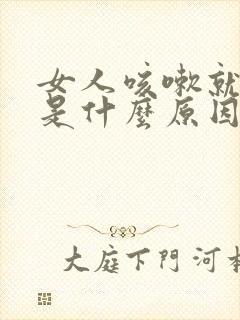 女人咳嗽就
是什麼原因
大庭下門河